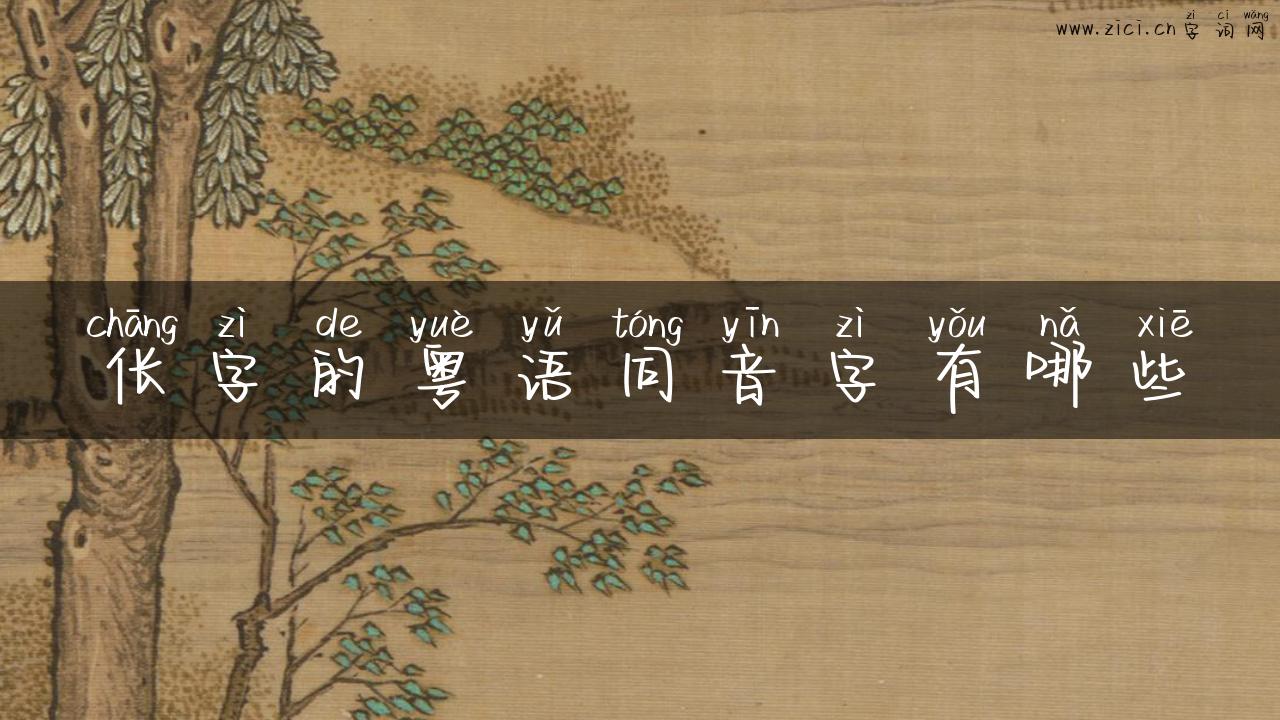 zì cí wǎng
www.zici.cn 字词网
chāng zì de yuè yǔ tóng yīn zì yǒu nǎ xiē
伥字的粤语同音字有哪些